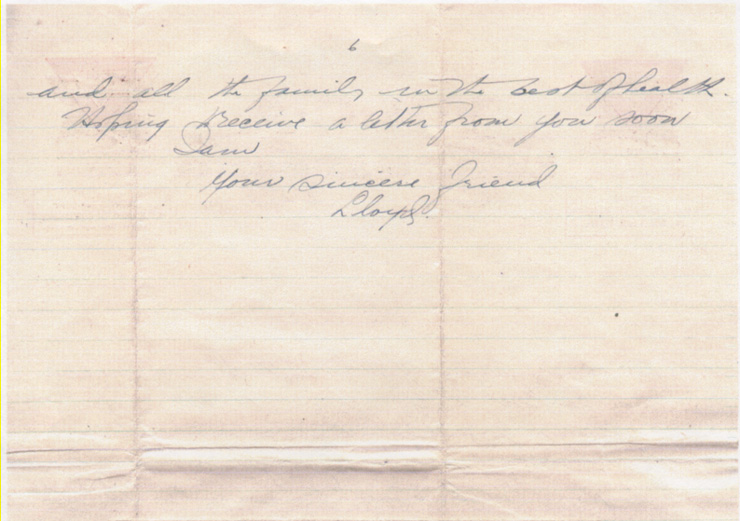 6
and all the family in the best of health.
Hoping to receive a letter from you soon
I am
Your sincere friend
Lloyd.